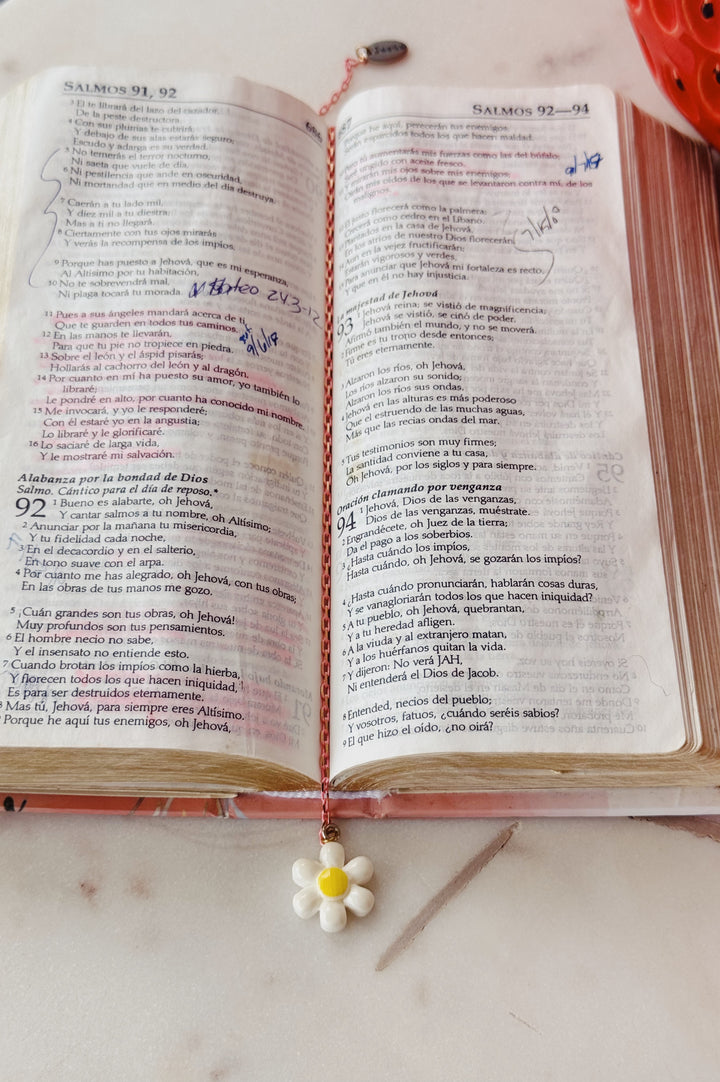 SALMOS 91, 92
3 El te librará del lazo del cazador,
De la peste destructora.
4 Con sus plumas te cubrirá,
Y debajo de sus alas estarás seguro;
Escudo y adarga es su verdad.
5 No temerás el terror nocturno,
Ni saeta que vuele de día,
6 Ni pestilencia que ande en oscuridad,
Ni mortandad que en medio del día destruya.
7 Caerán a tu lado mil,
Y diez mil a tu diestra;
Mas a ti no llegará.
8 Ciertamente con tus ojos mirarás
Y verás la recompensa de los impíos.
9 Porque has puesto a Jehová, que es mi esperanza,
Al Altísimo por tu habitación,
10 No te sobrevendrá mal,
Ni plaga tocará tu morada.
Mateo 24:3-12
11 Pues a sus ángeles mandará acerca de ti,
Que te guarden en todos tus caminos.
12 En las manos te llevarán,
Para que tu pie no tropiece en piedra.
13 Sobre el león y el áspid pisarás;
Hollarás al cachorro del león y al dragón.
14 Por cuanto en mí ha puesto su amor, yo también lo
libraré;
Le pondré en alto, por cuanto ha conocido mi nombre.
15 Me invocará, y yo le responderé;
Con él estaré yo en la angustia;
Lo libraré y le glorificaré.
16 Lo saciaré de larga vida,
Y le mostraré mi salvación.
Alabanza por la bondad de Dios
Salmo. Cántico para el día de reposo.*
92 1 Bueno es alabarte, oh Jehová,
Y cantar salmos a tu nombre, oh Altísimo;
2 Anunciar por la mañana tu misericordia,
Y tu fidelidad cada noche,
3 En el decacordio y en el salterio,
En tono suave con el arpa.
4 Por cuanto me has alegrado, oh Jehová, con tus obras;
En las obras de tus manos me gozo.
5 ¡Cuán grandes son tus obras, oh Jehová!
Muy profundos son tus pensamientos.
6 El hombre necio no sabe,
Y el insensato no entiende esto.
7 Cuando brotan los impíos como la hierba,
Y florecen todos los que hacen iniquidad,
Es para ser destruidos eternamente.
8 Mas tú, Jehová, para siempre eres Altísimo.
Porque he aquí tus enemigos, oh Jehová,
687
SALMOS 92—94
Porque he aquí, perecerán tus enemigos;
Serán esparcidos todos los que hacen maldad.
tú aumentarás mis fuerzas como las del búfalo;
ungido con aceite fresco.
mirarán mis ojos sobre mis enemigos;
mis oídos de los que se levantaron contra mí, de los
malignos.
El justo florecerá como la palmera;
Crecerá como cedro en el Líbano.
Plantados en la casa de Jehová,
En los atrios de nuestro Dios florecerán.
Aun en la vejez fructificarán;
Estarán vigorosos y verdes,
Para anunciar que Jehová mi fortaleza es recto,
Y que en él no hay injusticia.
La majestad de Jehová
93 1 Jehová reina; se vistió de magnificencia;
Jehová se vistió, se ciñó de poder.
Afirmó también el mundo, y no se moverá.
2 Firme es tu trono desde entonces;
Tú eres eternamente.
3 Alzaron los ríos, oh Jehová,
Los ríos alzaron su sonido;
Alzaron los ríos sus ondas.
4 Jehová en las alturas es más poderoso
Que el estruendo de las muchas aguas,
Más que las recias ondas del mar.
5 Tus testimonios son muy firmes;
La santidad conviene a tu casa,
Oh Jehová, por los siglos y para siempre.
Oración clamando por venganza
94 1 Jehová, Dios de las venganzas,
Dios de las venganzas, muéstrate.
2 Engrandécete, oh Juez de la tierra;
Da el pago a los soberbios.
3 ¿Hasta cuándo los impíos,
Hasta cuándo, oh Jehová, se gozarán los impíos?
4 ¿Hasta cuándo pronunciarán, hablarán cosas duras,
Y se vanagloriarán todos los que hacen iniquidad?
5 A tu pueblo, oh Jehová, quebrantan,
Y a tu heredad afligen.
6 A la viuda y al extranjero matan,
Y a los huérfanos quitan la vida.
7 Y dijeron: No verá JAH,
Ni entenderá el Dios de Jacob.
8 Entended, necios del pueblo;
Y vosotros, fatuos, ¿cuándo seréis sabios?
9 El que hizo el oído, ¿no oirá?